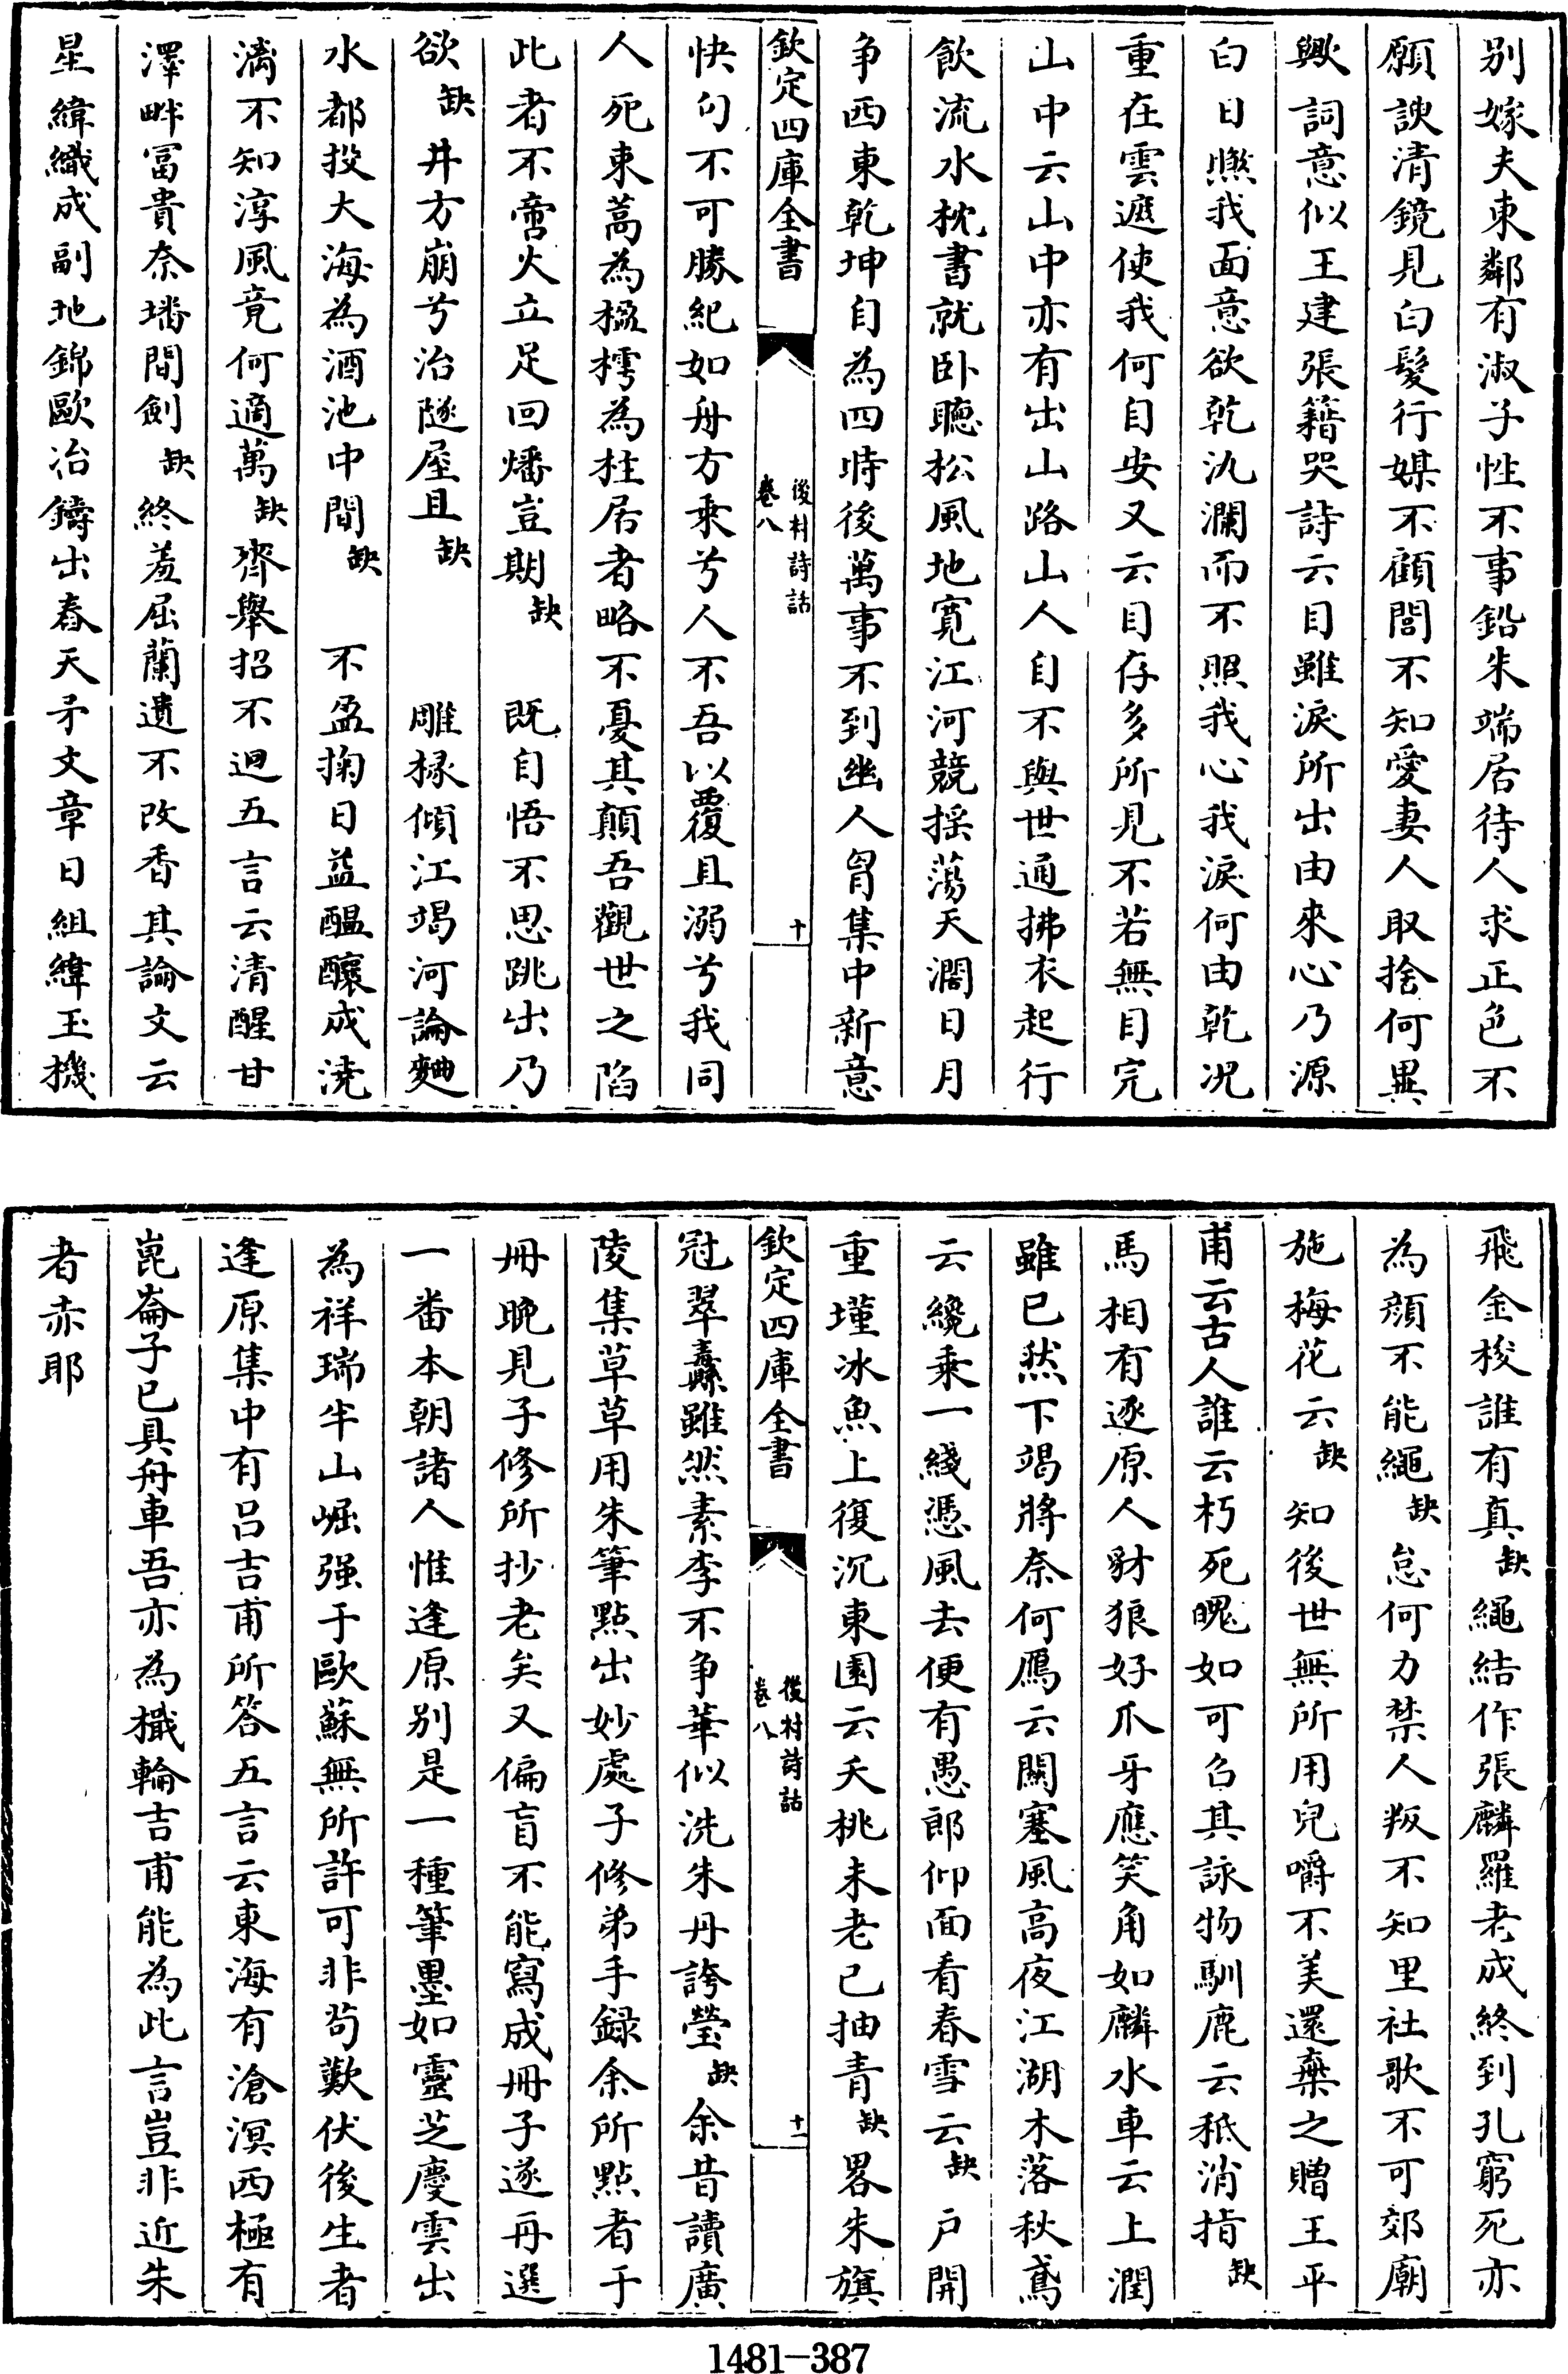 别嫁夫東鄰有淑子性不事鉛朱端居待人求正色不
願諛清鏡見白髮行媒不顧閭不知愛妻人取捨何異
歟詞意似王建張籍哭詩云目雖淚所出由來心乃源
白日照我面意欲乾汍瀾而不照我心我淚何由乾况
重在雲遮使我何自安又云目存多所見不若無目完
山中云山中亦有出山路山人自不與世通拂衣起行
飲流水枕書就卧聽松風地寛江河競揺蕩天濶日月
争西東乾坤自為四時後萬事不到幽人胷集中新意
欽定四庫全書
後村詩話
卷八
十
快句不可勝紀如舟方乘兮人不吾以覆且溺兮我同
人死束蒿為楹樗為柱居者略不憂其顛吾觀世之陷
此者不啻火立足回燔豈期缺 既自悟不思跳出乃
欲缺井方崩兮治隧屋且缺 雕椽傾江竭河論麯
水都投大海為酒池中間缺 不盈掬日益醖釀成澆
漓不知淳風竟何適萬缺齊舉招不迴五言云清醒甘
澤畔冨貴奈墦間劍缺終羞屈蘭遺不改香其論文云
星緯織成副地錦歐冶鑄出春天矛文章日組緯玉機
飛金梭誰有真缺繩結作張麟羅老成終到孔窮死亦
為顔不能繩缺怠何力禁人叛不知里社歌不可郊廟
施梅花云缺 知後世無所用兒嚼不美還棄之贈王平
甫云古人誰云朽死魄如可名其詠物馴鹿云秪消指缺
馬相有逐原人豺狼好爪牙應笑角如麟水車云上潤
雖已然下竭將奈何鴈云關塞風高夜江湖木落秋鳶
云纔乘一綫憑風去便有愚郎仰面看春雪云缺 户開
重墐冰魚上復沉東園云夭桃未老已抽青缺畧朱旗
欽定四庫全書
後村詩話
卷八
十一
冠翠纛雖然素李不争華似洗朱丹誇瑩缺余昔讀廣
陵集草草用朱筆點出妙處子修弟手録余所點者于
冊晚見子修所抄老矣又偏盲不能寫成冊子遂再選
一番本朝諸人惟逢原别是一種筆墨如靈芝慶雲出
為祥瑞半山崛强于歐蘇無所許可非茍歎伏後生者
逢原集中有呂吉甫所答五言云東海有滄溟西極有
崑崙子已具舟車吾亦為檝輪吉甫能為此言豈非近朱
者赤耶
1481-387